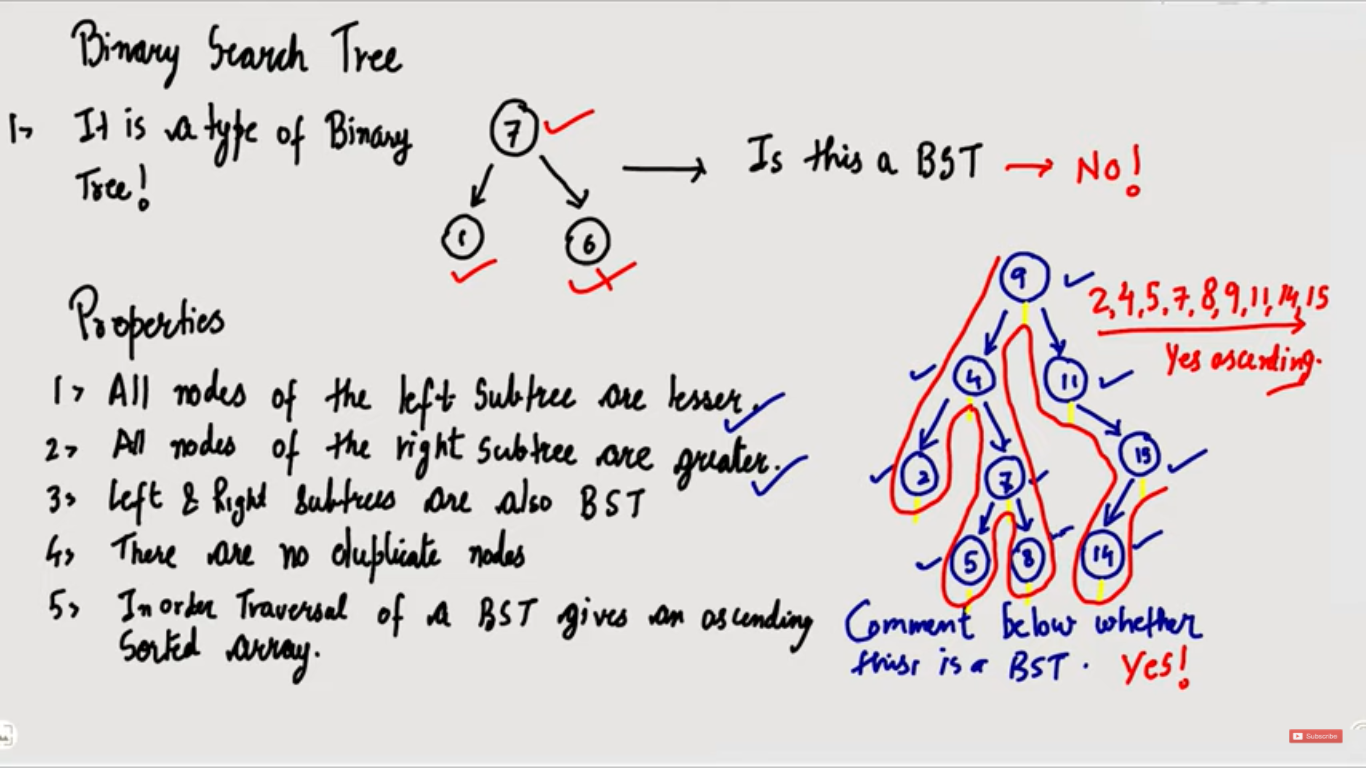 Binary Search Tree
1> It is a type of Binary
Tree!
7
1 6
Is this a BST → No!
Properties
1> All nodes of the left Subtree are lesser.
2> All nodes of the right subtree are greater.
3> Left & Right subtrees are also BST
4> There are no duplicate nodes
5> Inorder Traversal of a BST gives an ascending
Sorted array.
9
4 11
2 7 15
5 8 14
2,4,5,7,8,9,11,14,15
Yes ascending.
Comment below whether
this is a BST. Yes!
Subscribe